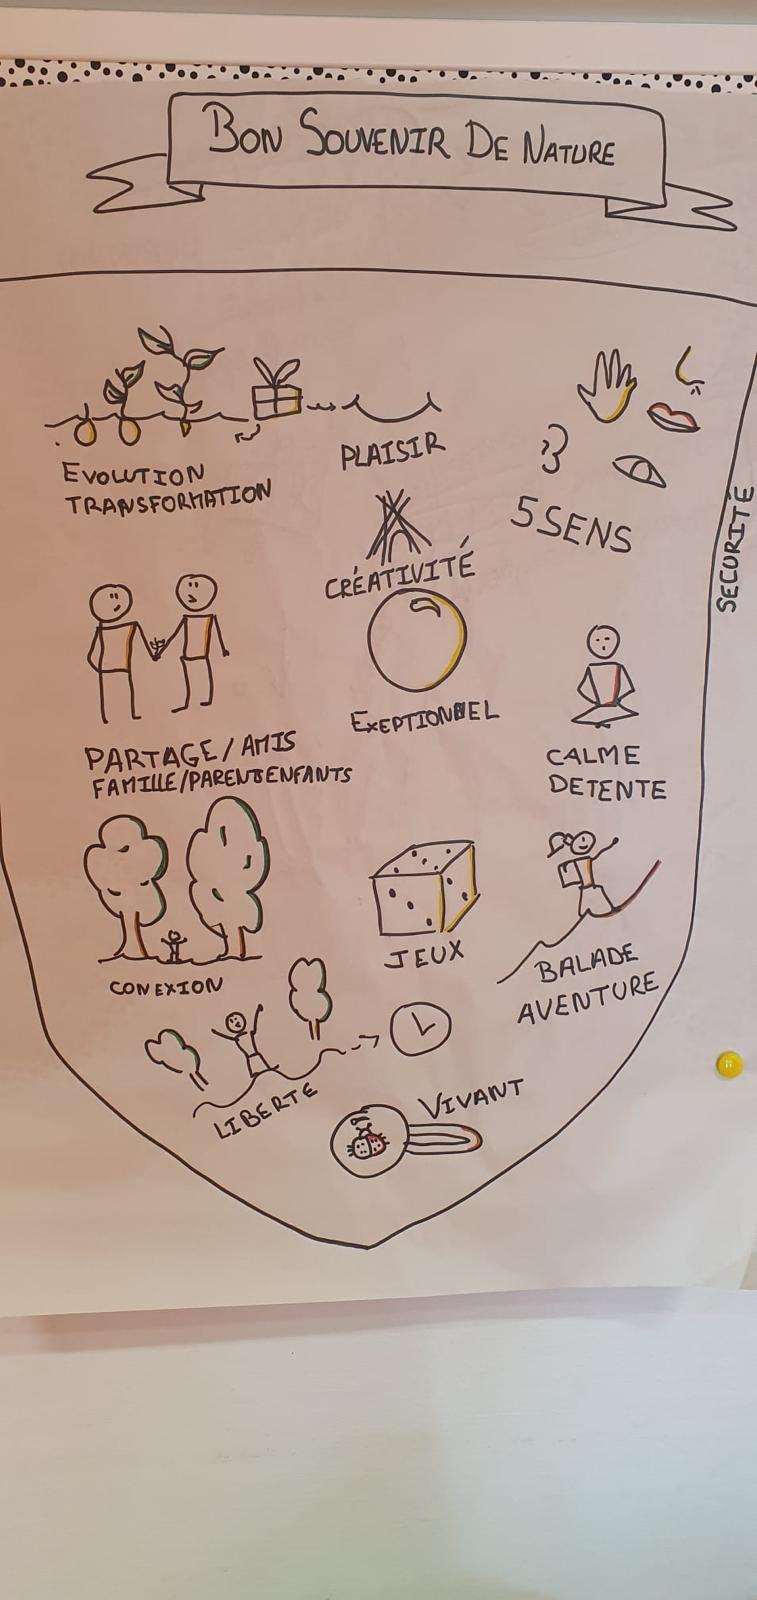 BON SOUVENIR DE NATURE
EVOLUTION
TRANSFORMATION
PLAISIR
5 SENS
SECURITÉ
CRÉATIVITÉ
EXEPTIONNEL
PARTAGE/AMIS
FAMILLE/PARENTSENFANTS
CALME
DETENTE
CONEXION
JEUX
BALADE
AVENTURE
LIBERTE
VIVANT